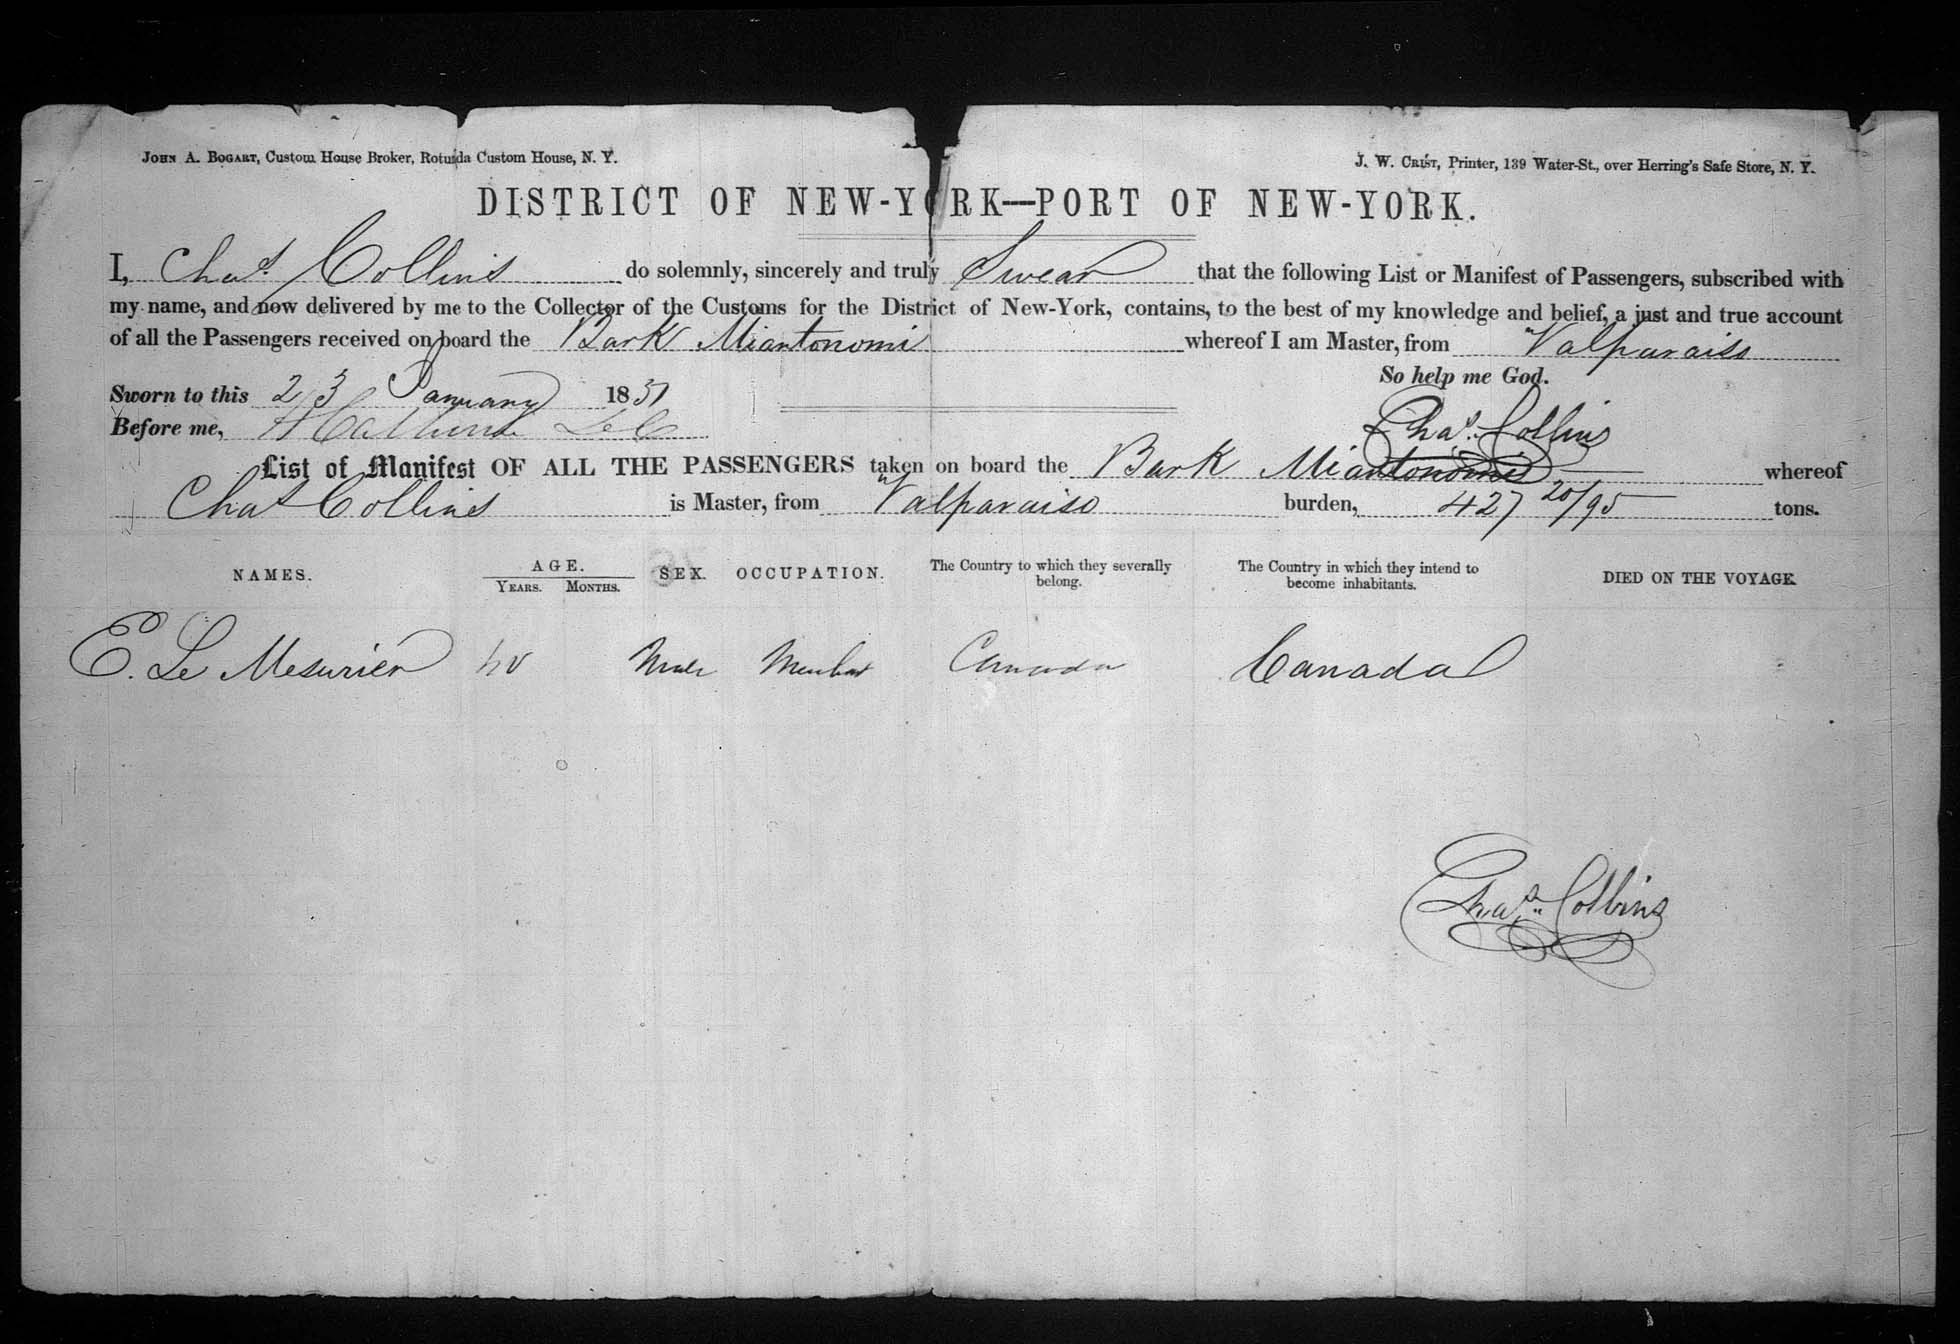 JOHN A. BOGART, Custom House Broker, Rotunda Custom House, N. Y.
J. W. CRIST, Printer, 139 Water-St., over Herring's Safe Store, N. Y.
DISTRICT OF NEW-YORK—PORT OF NEW-YORK.
I, Chas. Collins do solemnly, sincerely and truly Swear that the following List or Manifest of Passengers, subscribed with
my name, and now delivered by me to the Collector of the Customs for the District of New-York, contains, to the best of my knowledge and belief, a just and true account
of all the Passengers received on board the Bark Miantonomi whereof I am Master, from Valparaiso
So help me God.
Sworn to this 23 January 185
Chas. Collins
Before me,
List of Manifest OF ALL THE PASSENGERS taken on board the Bark Miantonomi whereof
Chas Collins is Master, from Valparaiso burden, 427 20/95 tons.
NAMES. AGE. SEX. OCCUPATION. The Country to which they severally belong. The Country in which they intend to become inhabitants. DIED ON THE VOYAGE.
YEARS. MONTHS.
E. Le Mesurier Male Canada Canada
Chas. Collins